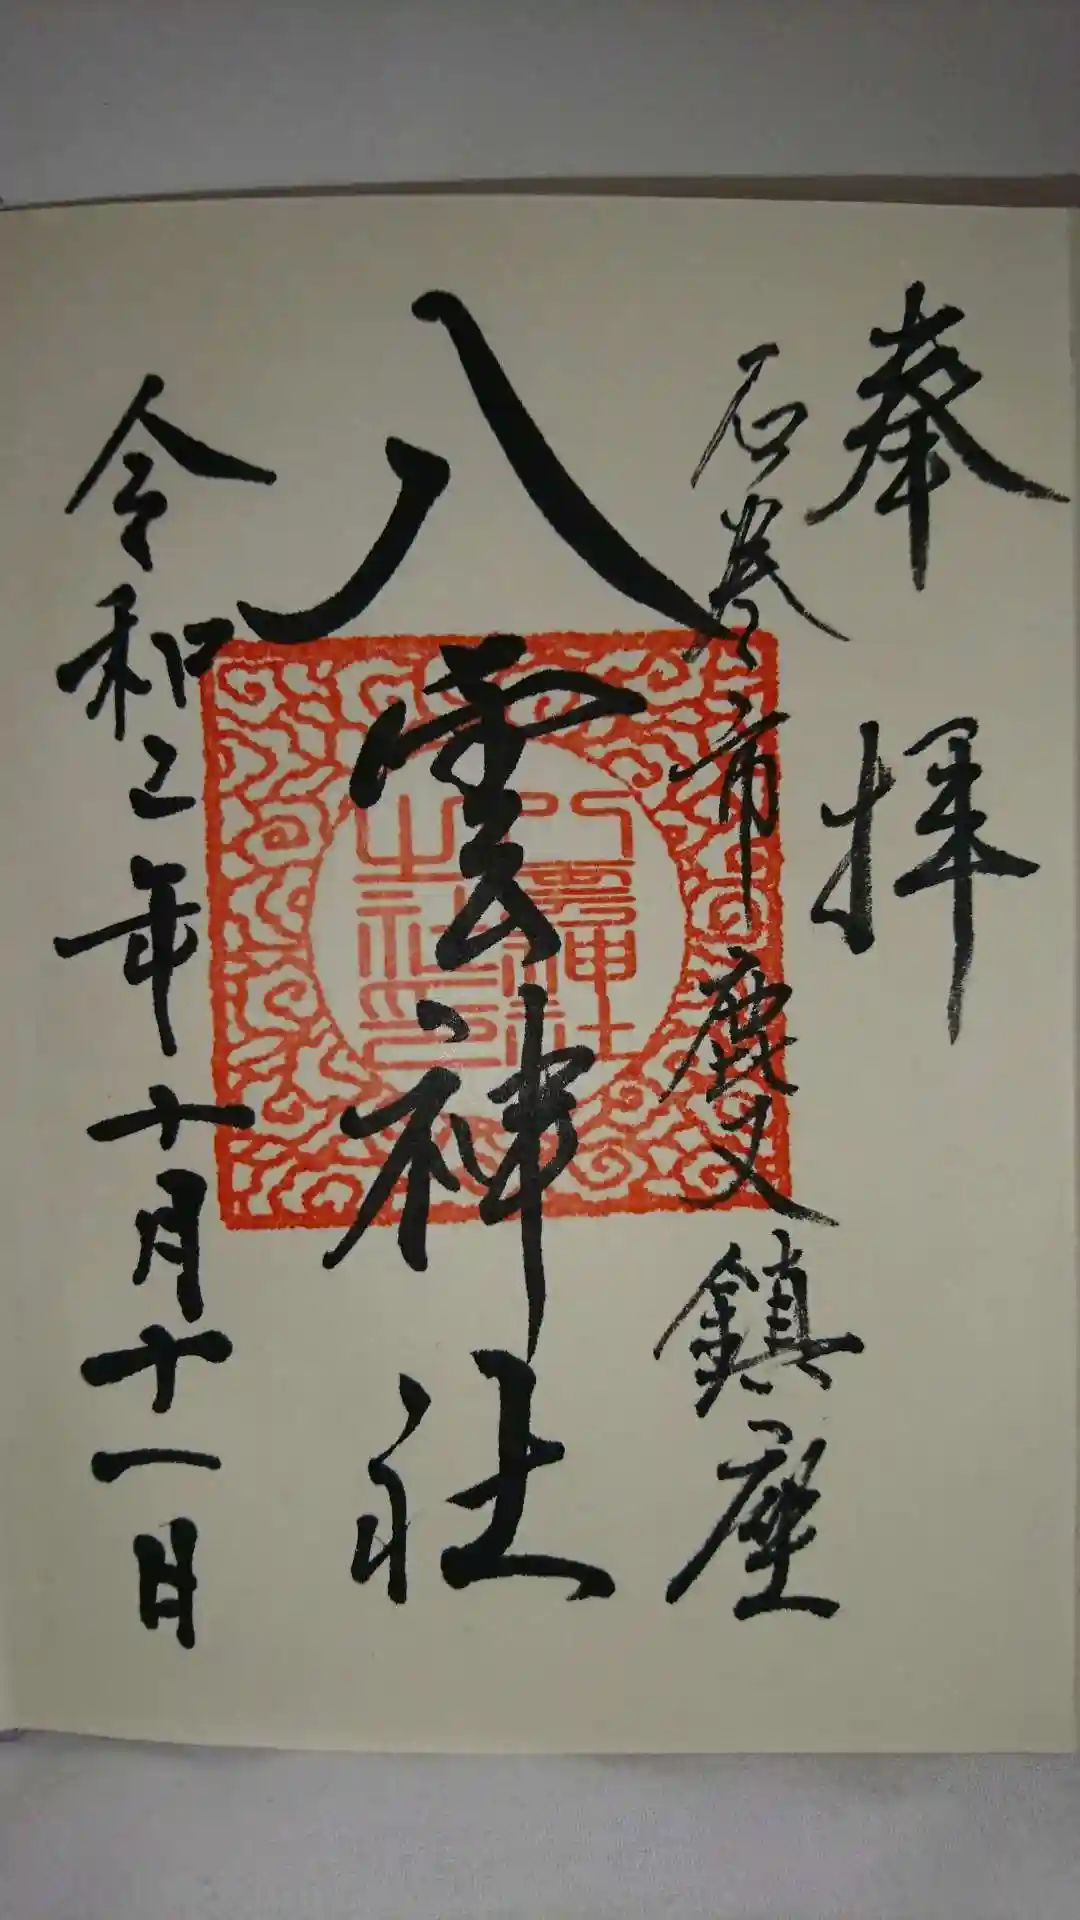 奉拝
石巻市鹿又鎮座
八雲神社
八雲神社
令和三年十月十一日